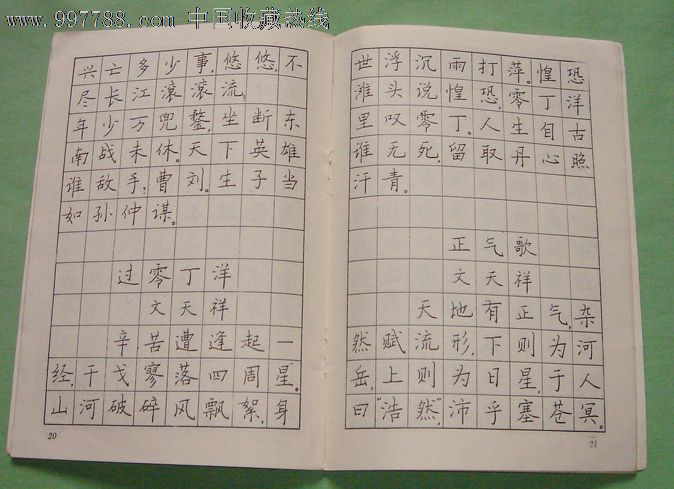 www.997788.com 中国收藏热线
兴亡多少事,悠悠,不
尽长江滚滚流,
年少万兜鍪,坐断东
南战未休。天下英雄
谁敌手,曹刘。生子当
如孙仲谋。
过零丁洋
文天祥
辛苦遭逢起一
经,干戈寥落四周星。
山河破碎风飘絮,身
20
世浮沉雨打萍。惶恐
滩头说惶恐,零丁洋
里叹零丁。人生自古
谁无死,留取丹心照
汗青。
正气歌
文天祥
天地有正气,杂
然赋流形,下则为河
岳,上则为日星,于人
曰“浩然”,沛乎塞苍冥。
21